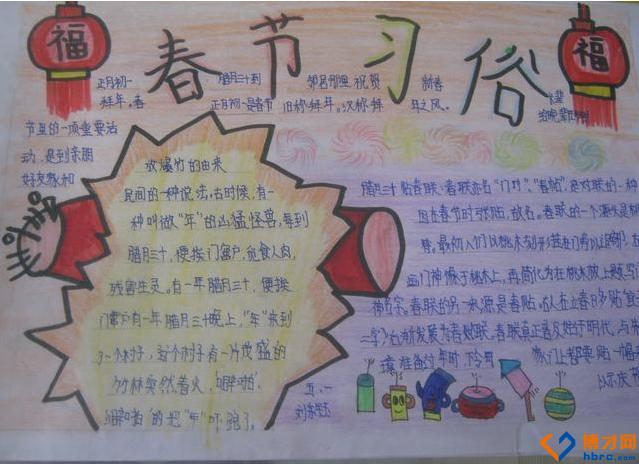 福
春节习俗
福
正月初一
拜年。春
节里的一项重要活
动，是到亲朋
好友家和
腊月三十到
正月初一是春节
邻居那里祝贺
旧称拜年。汉称拜
新春
年之风。
放爆竹的由来
民间的一种说法，古时候，有一
种叫做"年"的凶猛怪兽，每到
腊月三十，便挨门窜户，觅食人肉，
残害生灵。有一年腊月三十，便挨
门窜户有一年腊月三十晚上，"年"来到
了一个村子，这个村子有一片茂盛的
竹林突然着火，"噼啪"
"噼啪"的把"年"吓跑了。
腊月三十贴春联。春联亦名"门对"、"春帖"，是对联的一种，
因在春节时张贴，故名。春联的一个源头是桃
画门神像于桃木上，再简化为在桃木板上题写门
神名字。春联的另一来源是春贴。古人在立春日多贴"宜
春联真正普及始于明代，与
我们都要贴一幅春
以示庆祝
五、一
博才网
hbrc.com